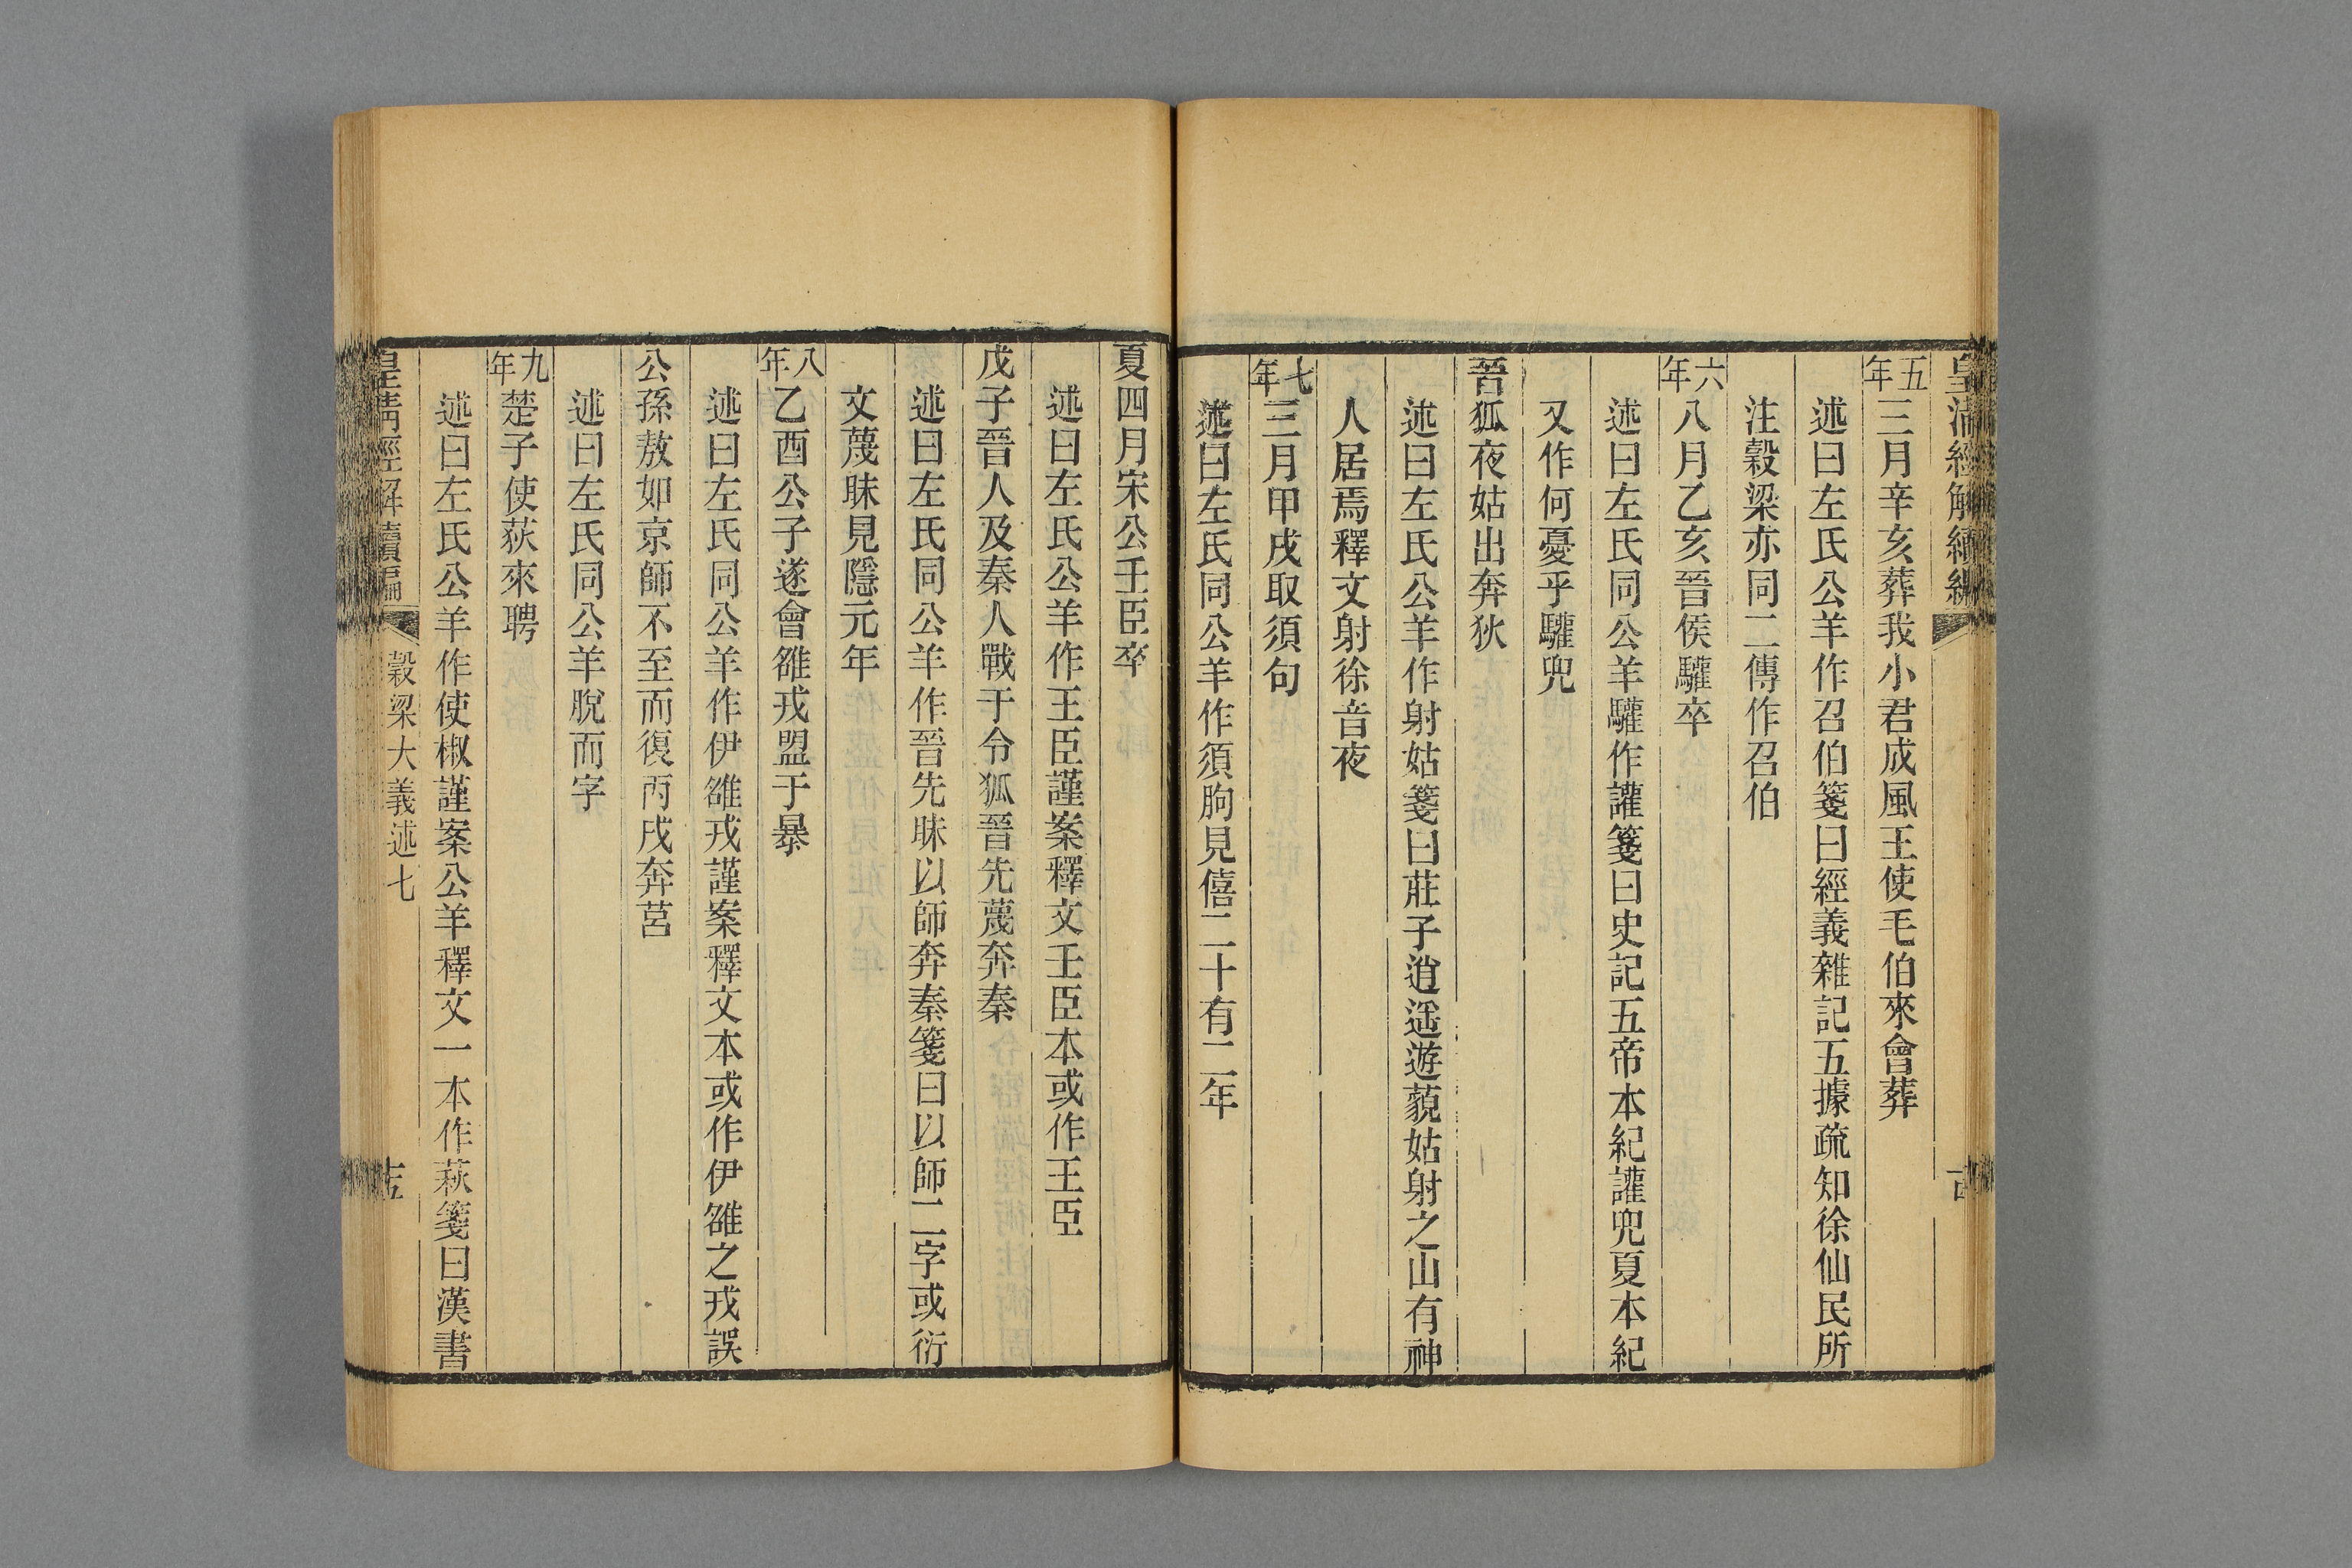 皇清經解續編
五年三月辛亥葬我小君成風王使毛伯來會葬
述曰左氏公羊作召伯箋曰經義雜記五據疏知徐仙民所
注穀梁亦同二傳作召伯
六年八月乙亥晉侯驩卒
述曰左氏同公羊驩作讙箋曰史記五帝本紀讙兜夏本紀
又作何憂乎驩兜
晉狐夜姑出奔狄
述曰左氏公羊作射姑箋曰莊子逍遥遊藐姑射之山有神
人居焉釋文射徐音夜
七年三月甲戌取須句
述曰左氏同公羊作須朐見僖二十有二年
夏四月宋公壬臣卒
述曰左氏公羊作王臣謹案釋文壬臣本或作王臣
戊子晉人及秦人戰于令狐晉先蔑奔秦
述曰左氏同公羊作晉先昧以師奔秦箋曰以師二字或衍
文蔑昧見隱元年
八年乙酉公子遂會雒戎盟于暴
述曰左氏同公羊作伊雒戎謹案釋文本或作伊雒之戎誤
公孫敖如京師不至而復丙戌奔莒
述曰左氏同公羊脫而字
九年楚子使萩來聘
述曰左氏公羊作使椒謹案公羊釋文一本作萩箋曰漢書
皇清經解續編
穀梁大義述七